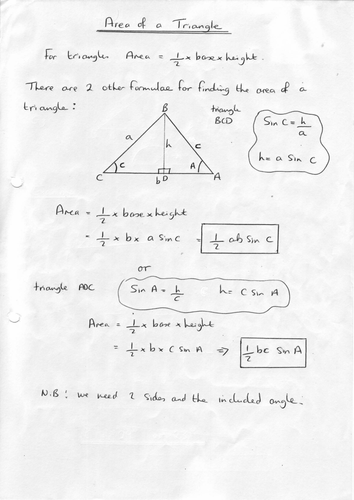 Area of a Triangle
For triangles Area = 1/2 x base x height.
There are 2 other formulae for finding the area of a
triangle:
B
triangle
BCD
Sin C = h/a
h = a Sin C
a
h
c
C
A
C
b
D
A
Area = 1/2 x base x height
= 1/2 x b x a Sin C = 1/2 ab Sin C
or
triangle
Sin A = h/c
h = C Sin A
Area = 1/2 x base x height
= 1/2 x b x C Sin A ⇒ 1/2 bc Sin A
N.B: we need 2 sides and the included angle.